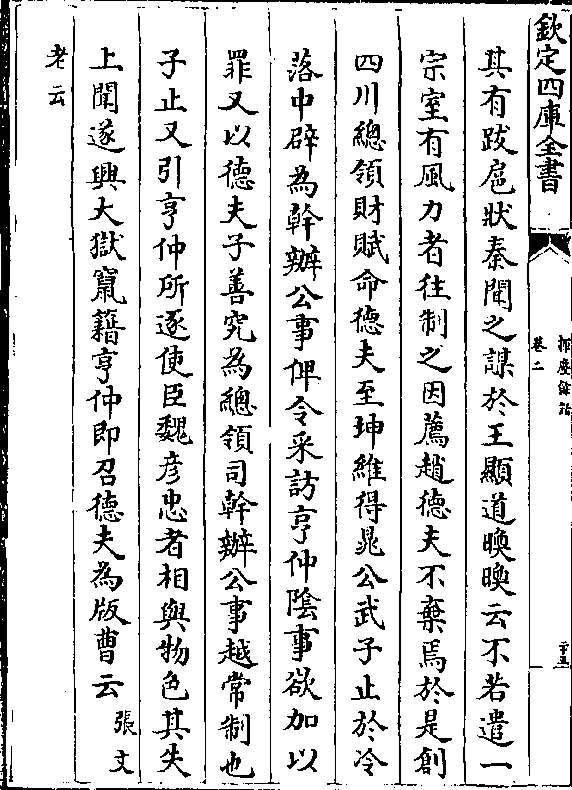 欽定四庫全書
揮麈餘話
卷二
其有跋扈狀秦聞之謀於王顯道㬇㬇云不若遣一
宗室有風力者往制之因薦趙德夫不棄焉於是創
四川總領財賦命德夫至坤維得晁公武子止於冷
落中辟為幹辦公事俾令采訪亨仲陰事欲加以
罪又以德夫子善究為總領司幹辦公事越常制也
子止又引亨仲所逐使臣魏彦忠者相與物色其失
上聞遂興大獄竄籍亨仲即召德夫為版曹云 張文
老云